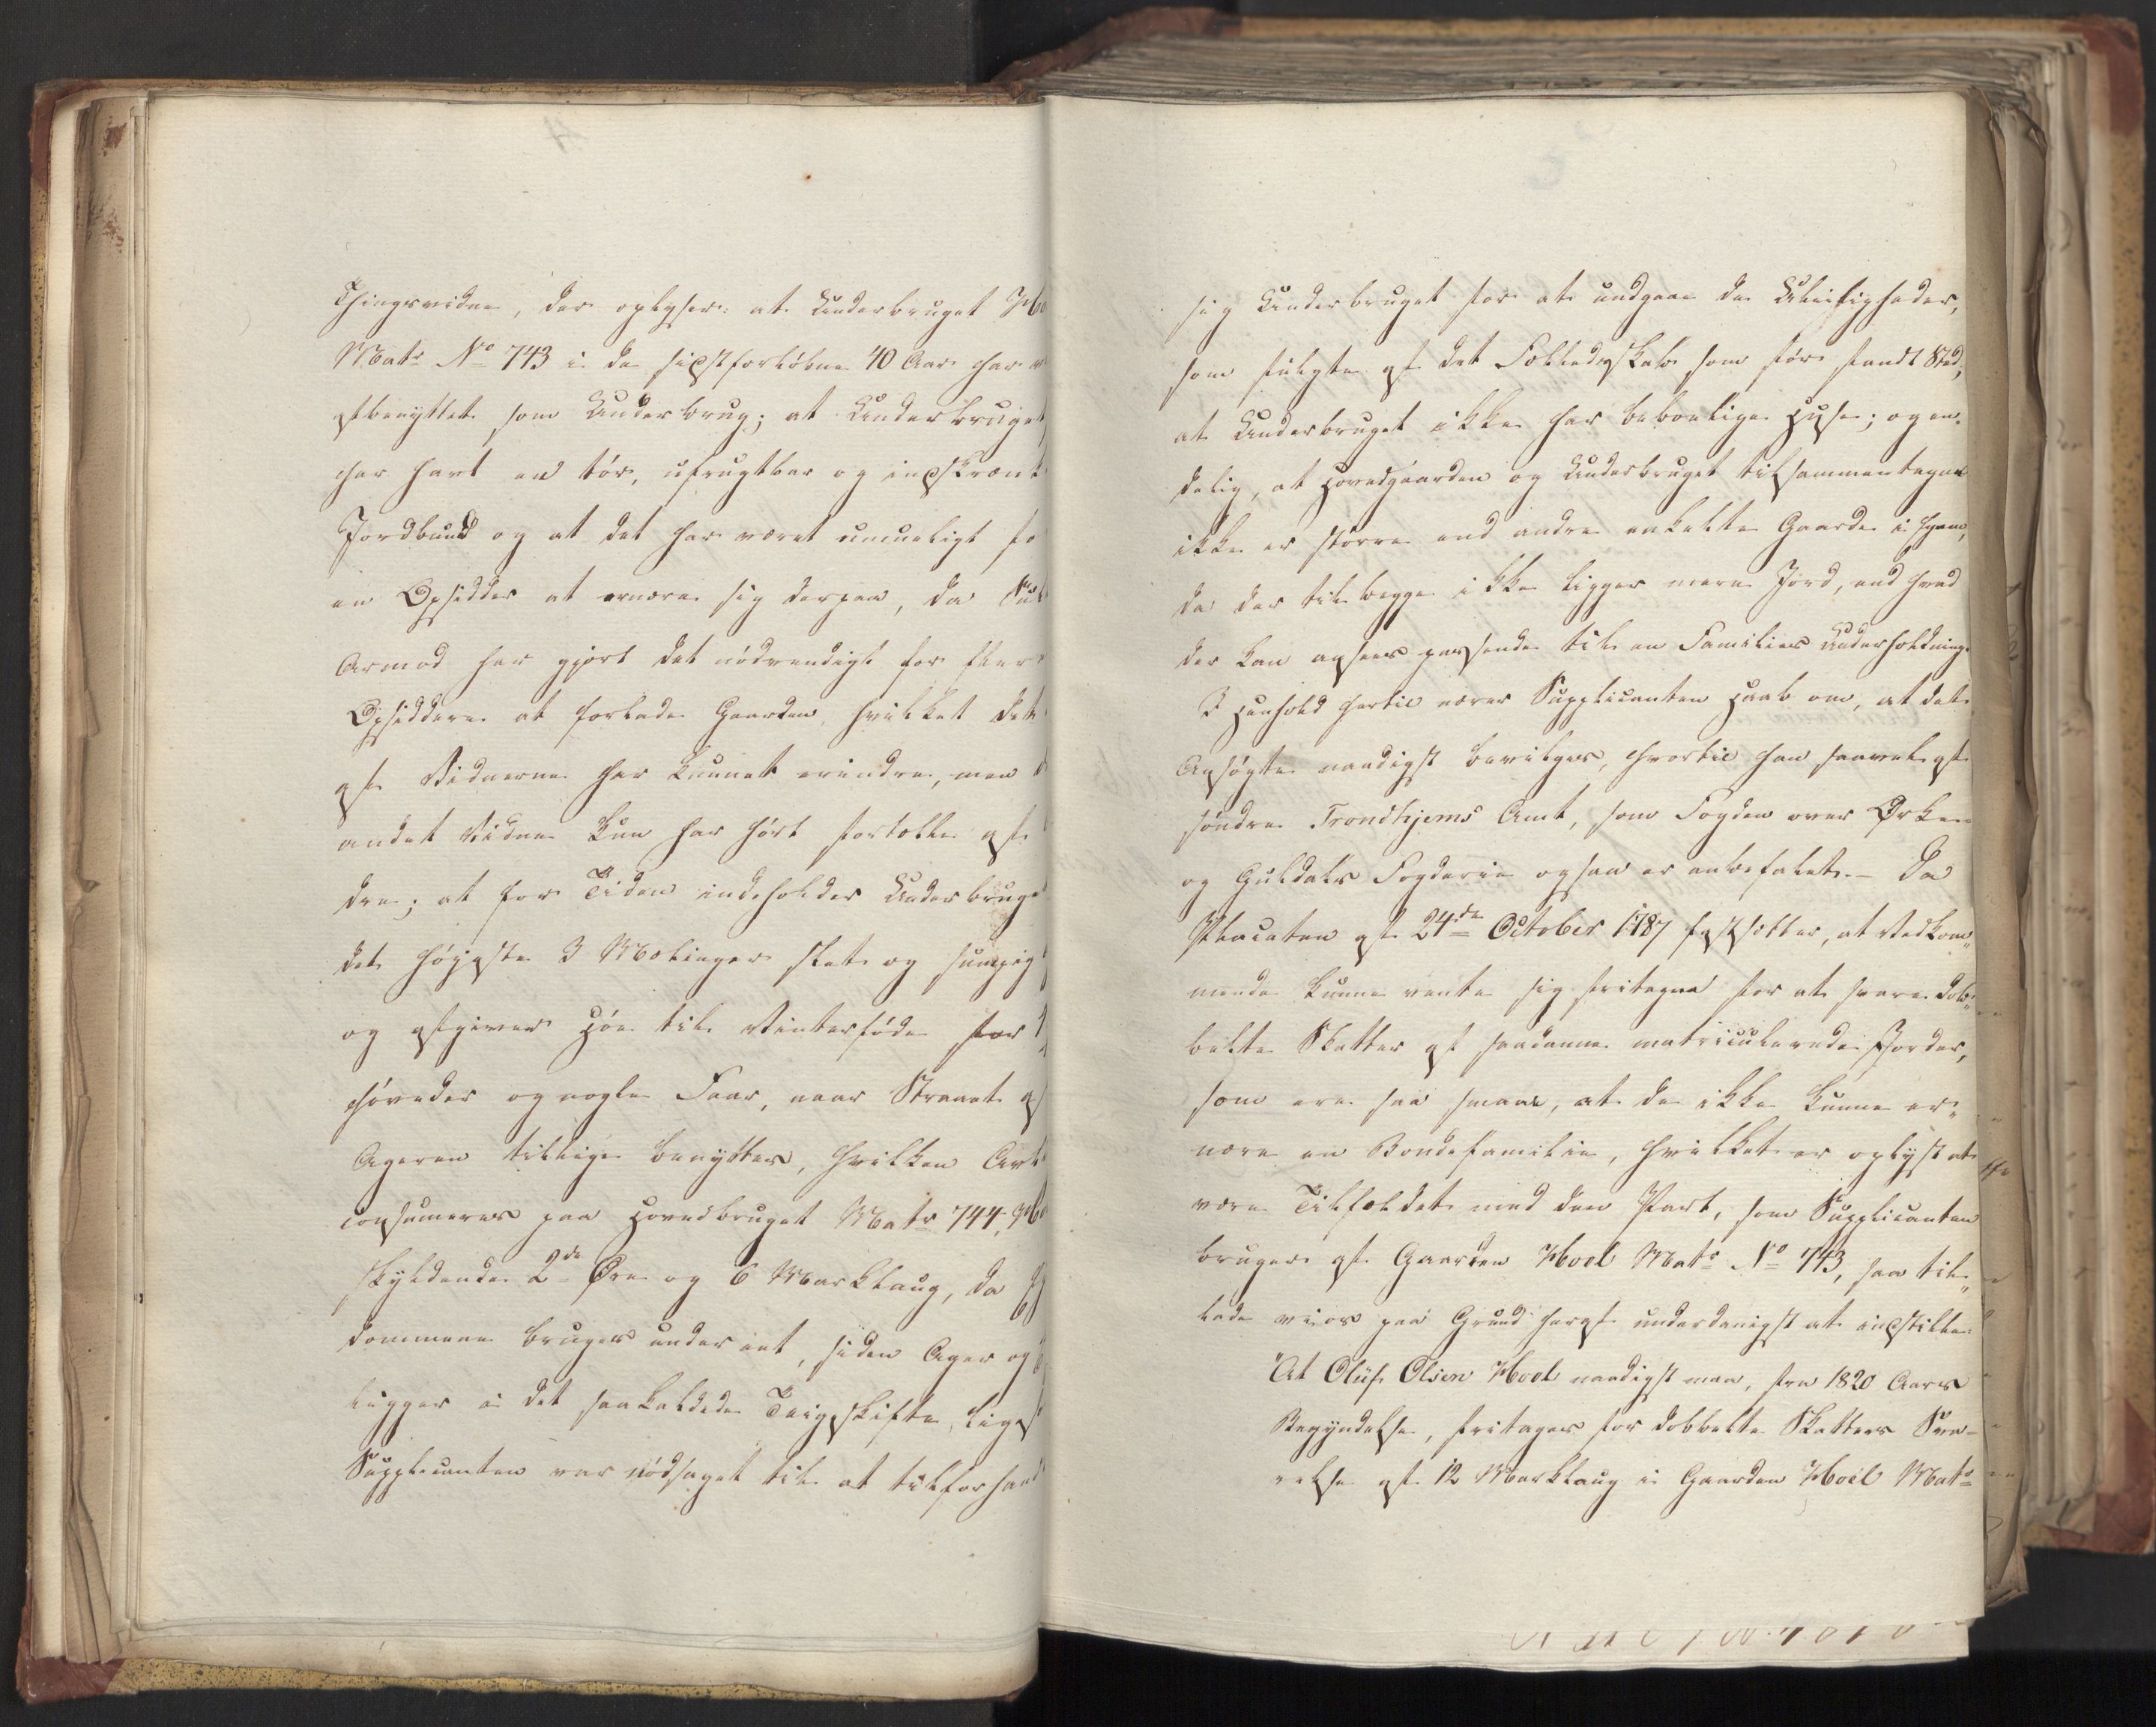 Thingsvidne, der oplyser: at Underbruget Ho
Matr No 743 i de sidstforløbne 40 Aar har v
afbenyttet som Underbrug; at Underbruget
har havt en tør, ufrugtbar og indskrænt
Jordbund og at det har været umueligt fo
en Opsidder at ernære sig derpaa, da
Armod har gjort det nødvendigt for flere
Opsiddere at forlade Gaarden, hvilket det
af Vidnerne har kunnet erindre, men
andet Vidne kun har hørt fortælle af
dre; at for Tiden indeholder Underbruge
det høyeste 3 Mælinger slet og sumpig
og afgiver Høe til Vinterføde for 4
Høveder og nogle Faar, naar Straaet af
Ageren tillige benyttes, hvilken Avl
consumeres paa Hovedbruget Matr 744, Ho
skyldende 2de Øre og 6 Marklaug, da Ej
dommene bruges under eet, siden Ager og
ligger i det saakaldede Teigskifte, ligesom
Supplicanten var nødsaget til at tilforhand
sig Underbruget for at undgaae de Uleiligheder,
som fulgte af det Fælledsskab som før fandt Sted;
at Underbruget ikke har beboelige Huse; og en-
delig, at Hovedgaarden og Underbruget tilsammentagne
ikke er større end andre enkelte Gaarde i Egnen,
da der til begge ikke ligger mere Jord, end hvad
der kan ansees passende til en Families Underholdning.
I Henhold hertil nærer Supplicanten Haab om, at det
Ansøgte naadigst bevilges, hvortil han saavel af
søndre Trondhjems Amt, som Fogden over Ørke-
og Guldals Fogderie ogsaa er anbefalet. - Da
Placaten af 24de October 1787 fastsætter, at Vedkom„
mende kunne vente sig fritagne for at svare dob„
belte Skatter af saadanne matriculerede Jorder,
som ere saa smaae, at de ikke kunne er„
nære en Bondefamilie, hvilket er oplyst at
være Tilfældet med den Part, som Supplicanten
bruger af Gaarden Hoel Matr No 743, saa til„
lade vi os paa Grund heraf underdanigst at indstille:
"At Oluf Olsen Hoel naadigst maa, fra 1820 Aars
Begyndelse, fritages for dobbelte Skatters Sva-
relse af 12 Marklaug i Gaarden Hoel Matr